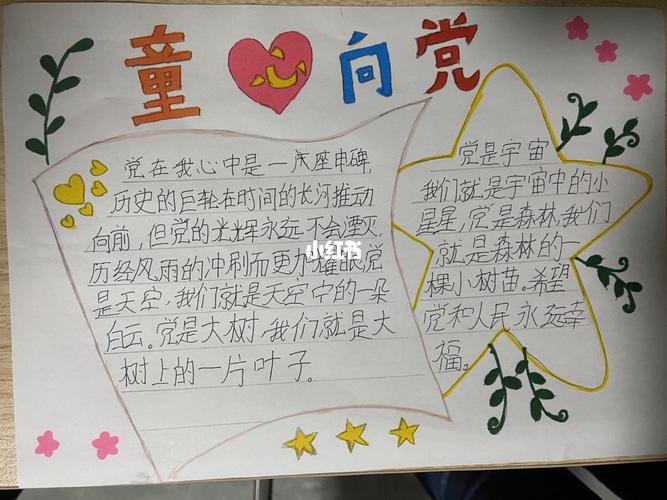 童心向党
党在我心中是一床座串碑,
历史的巨轮在时间的长河推动
向前,但党的光辉永远不会湮灭,
历经风雨的冲刷而更加耀眼党
是天空,我们就是天空宁的一朵
白云。党是大树,我们就是大
树上的一片叶子。
党是宇宙
我们就是宇宙中的小
星星,党是森林,我们
就是森林的一
棵小树苗。希望
党和人民永远幸
福。
小红书